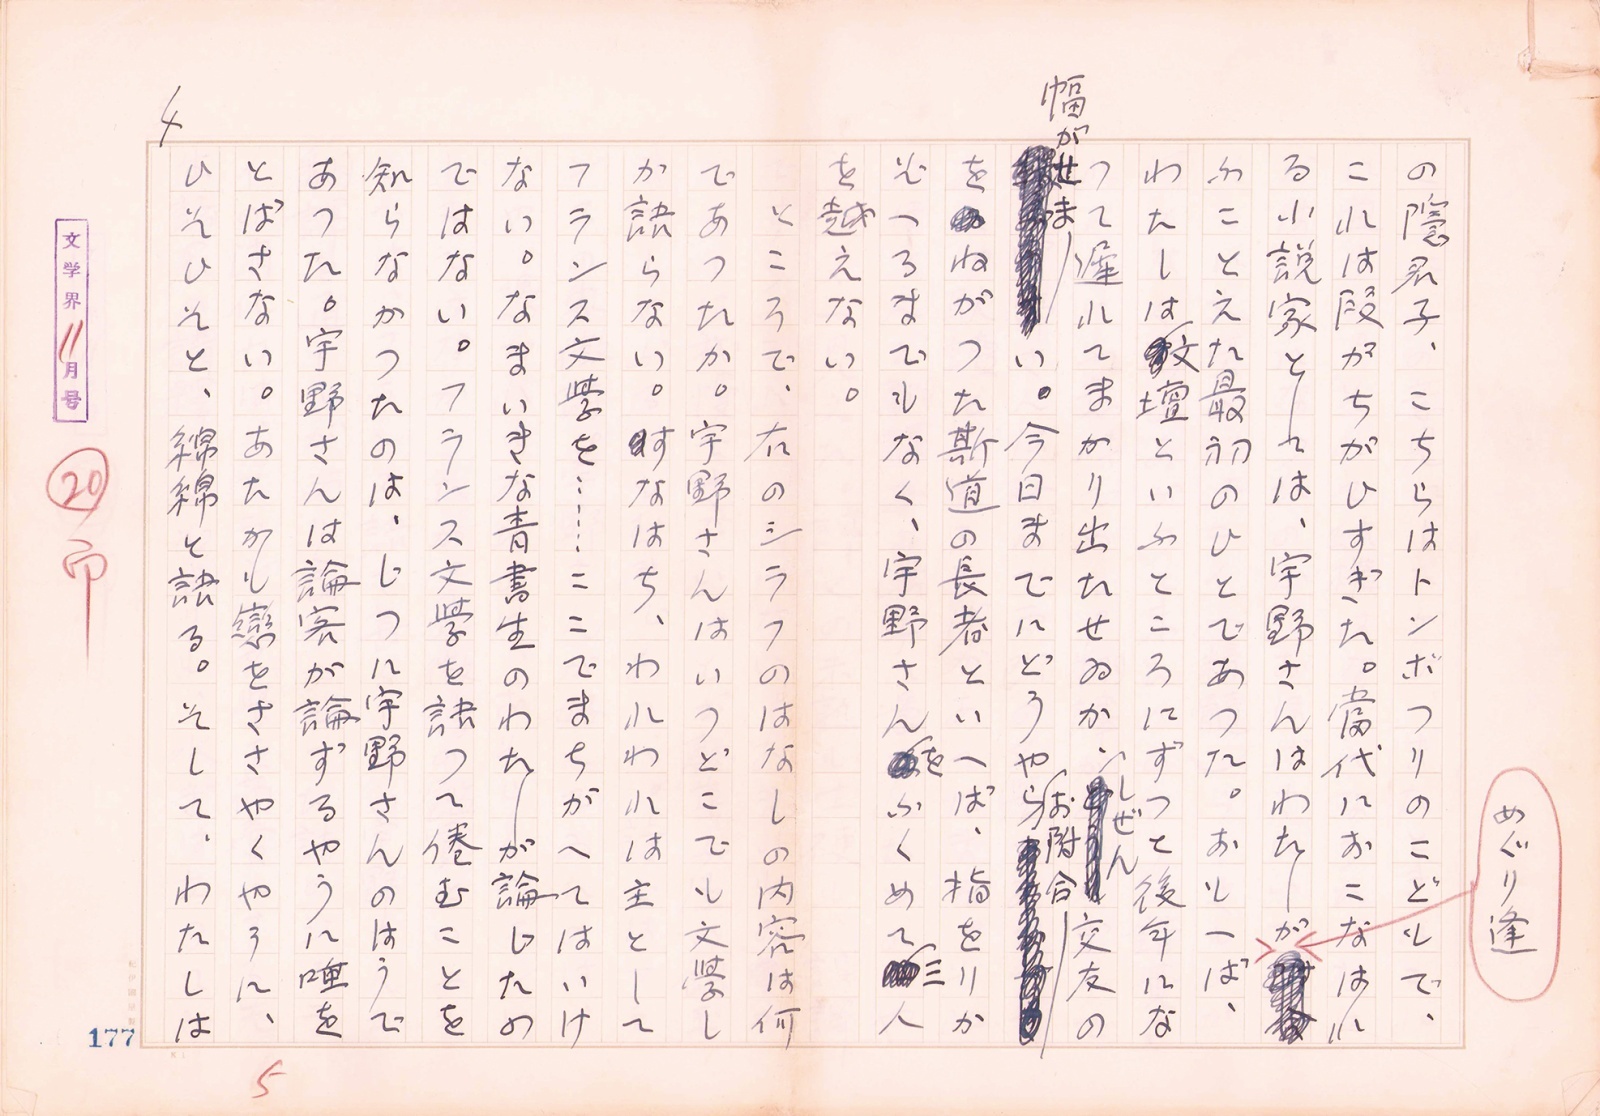 の隱君子、こちらはトンボつりのこどもで、
これは段がちがひすぎた。當代におこなはれ
る小説家としては、宇野さんはわたしが
めぐり逢
ふことをえた最初のひとであつた。おもへば、
わたしは文壇といふところにずつと後年にな
つて遲れてまかり出たせゐか、しぜん交友の
幅がせま
い。今日までにどうやらお附合
をねがつた斯道の長者といへば、指をりか
ぞへるまでもなく、宇野さんをふくめて三人
を越えない。
ところで、右のシラフのはなしの内容は何
であつたか。宇野さんはいつどこでも文學し
か語らない。すなはち、われわれは主として
フランス文學を……ここでまちがへてはいけ
ない。なまいきな青書生のわたしが論じたの
ではない。フランス文學を語つて倦むことを
知らなかつたのは、じつに宇野さんのはうで
あつた。宇野さんは論客が論ずるやうに唾を
とばさない。あたかも戀をささやくやうに、
ひそひそと、綿綿と語る。そして、わたしは
4
文学界11月号
20
177
5